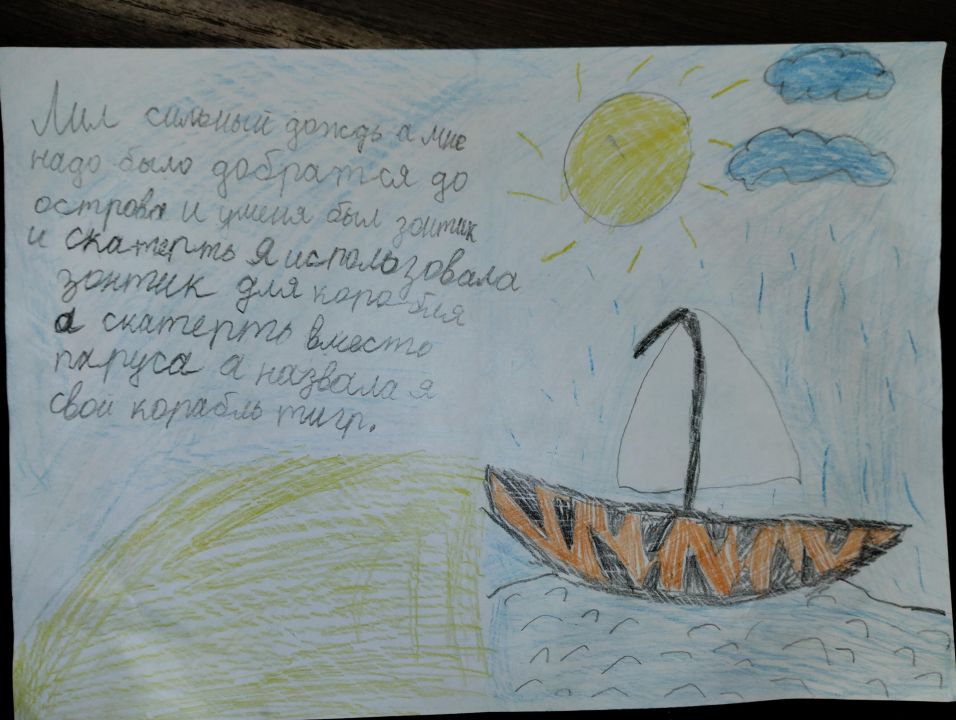 Лил сильный дождь а мне
надо было добратся до
острова и уменя был зонтик
и скатерть Я использовала
зонтик для корабля
а скатерть вместо
паруса а назвала я
свой корабль тигр.